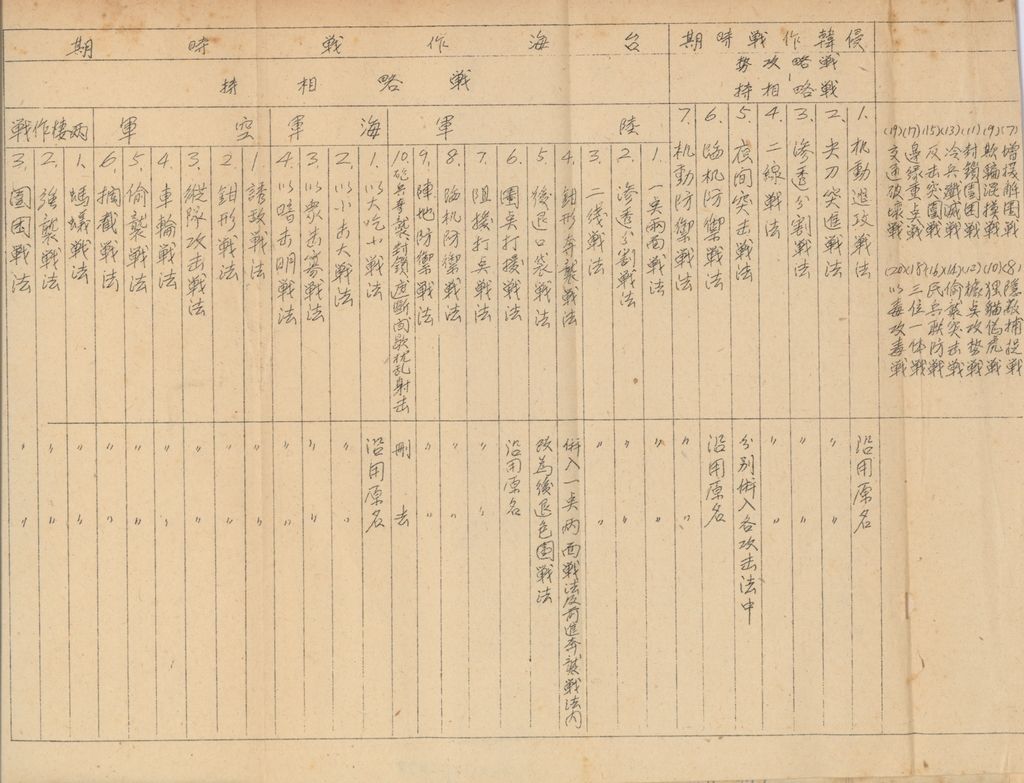 (7)增援解圍戰
(8)隱蔽捕捉戰
(9)欺騙混摸戰
(10)狠貓僞虎戰
(11)封鎖圍困戰
(12)據点攻勢戰
(13)冷兵殲滅戰
(14)偷襲突击戰
(15)反击突圍戰
(16)民兵联防戰
(17)邊緣重兵戰
(18)三位一体戰
(19)交通破壞戰
(20)以毒攻毒戰
侵韓作戰時期
戰略攻勢
戰略相持
1.机動進攻戰法 沿用原名
2.尖刀突進戰法 〃 〃
3.滲透分割戰法 〃 〃
4.二線戰法 〃 〃
5.夜間突击戰法 分別併入各攻击法中
6.臨机防禦戰法 沿用原名
7.机動防禦戰法 〃 〃
台海作戰時期
戰略相持
陸軍
1.一点两面戰法 〃 〃
2.滲透分割戰法 〃 〃
3.二线戰法 〃 〃
4.鉗形奔襲戰法 併入一点两面戰法及前進奔襲戰法內
5.後退口袋戰法 改為後退包圍戰法
6.圍点打援戰法 沿用原名
7.阻援打点戰法 〃 〃
8.臨机防禦戰法 〃 〃
9.陣地防禦戰法 〃 〃
10.砲兵奇襲封鎖遮断間歇扰乱射击 刪去
海軍
1.以大吃小戰法 沿用原名
2.以小击大戰法 〃 〃
3.以衆击寡戰法 〃 〃
4.以暗击明戰法 〃 〃
空軍
1.誘敌戰法 〃 〃
2.鉗形戰法 〃 〃
3.縱隊攻击戰法 〃 〃
4.車輪戰法 〃 〃
5.偷襲戰法 〃 〃
6.攔截戰法 〃 〃
两棲作戰
1.螞蟻戰法 〃 〃
2.強襲戰法 〃 〃
3.圍困戰法 〃 〃